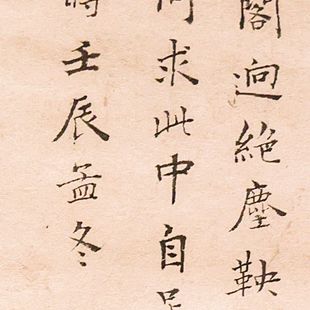 閣迥絕塵鞅
何求此中自足
時壬辰孟冬